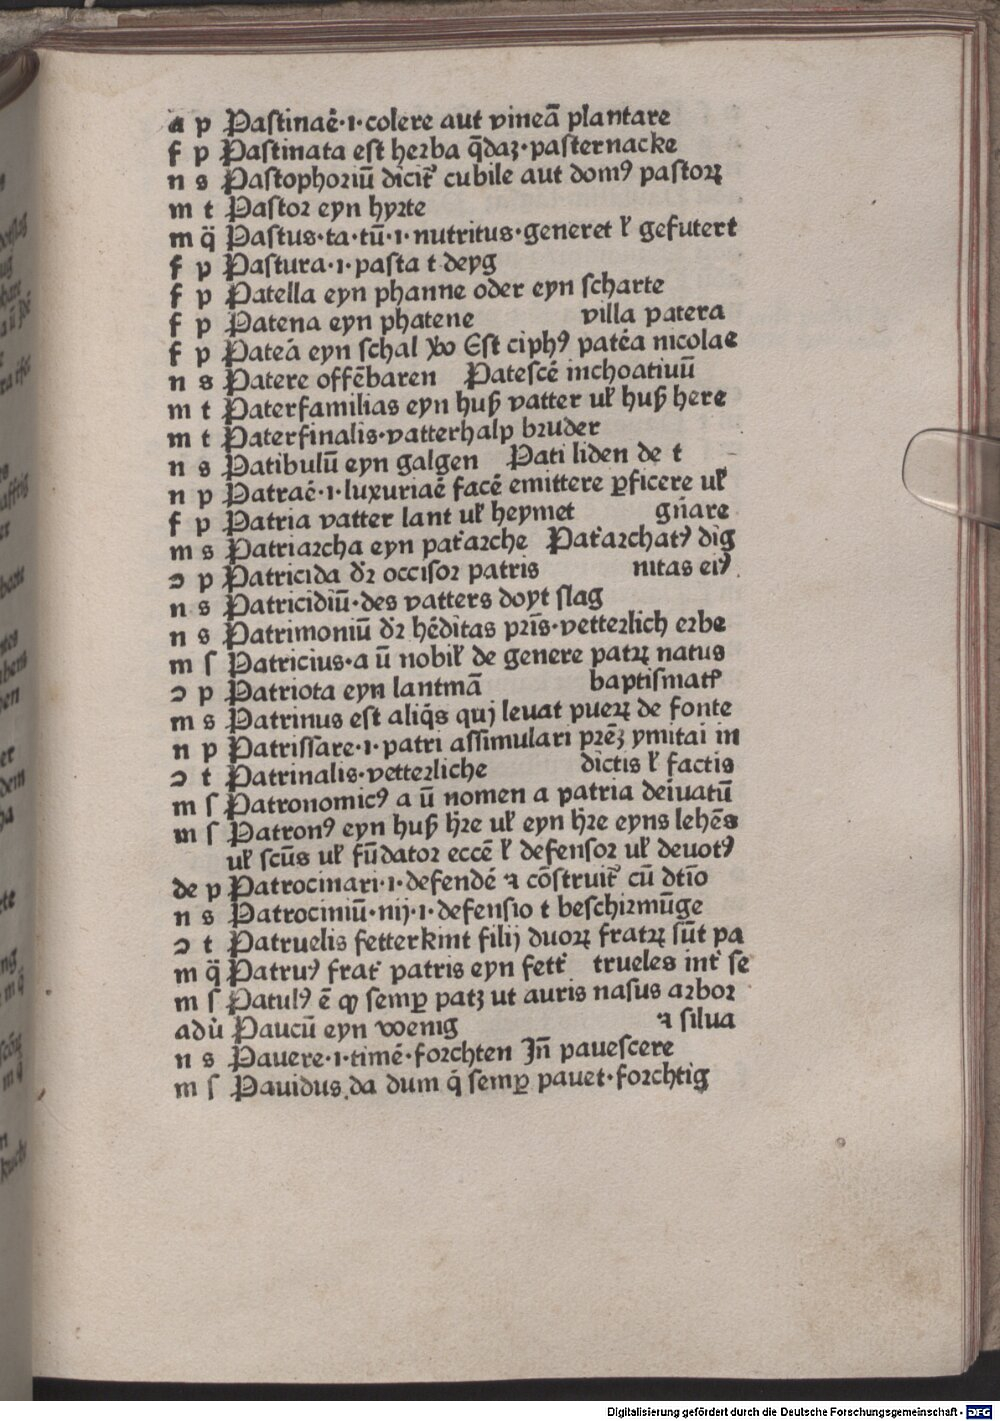 a p Paſtinaē·i·colere aut vineā plantare
f p Paſtinata eſt herba q̄daꝫ·paſternacke
n s Paſtophoriū dicit᷑ cubile aut domꝰ paſtoꝝ
m t Paſtor eyn hyrte
m q̈ Paſtus·ta·tū·i·nutritus·generet ł gefutert
f p Paſtura·i·paſta t deyg
f p Patella eyn phanne oder eyn ſcharte
f p Patena eyn phatene villa patera
f p Pateā eyn ſchal Vo Eſt ciphꝰ patēa nicolae
n s Patere offēbaren Pateſcē inchoatiuū
m t Paterfamilias eyn huß vatter uł huß here
m t Paterfinalis·vatterhalp bruder
n s Patibulū eyn galgen Pati liden de t
n p Patraē·i·luxuriaē facē emittere ꝑficere uł
f p Patria vatter lant uł heymet gn̄are
m s Patriarcha eyn pat᷑arche Pat᷑archatꝰ dig
ↄ p Patricida dr̄ occiſor patris nitas eiꝰ
n s Patricidiū·des vatters doyt ſlag
n s Patrimoniū dr̄ hēditas pri̅s·vetterlich erbe
m ſ Patricius·a ū nobił de genere patꝝ natus
ↄ p Patriota eyn lantmā baptiſmatꝭ
m s Patrinus eſt aliq̄s quj leuat pueꝝ de fonte
n p Patriſſare·i·patri aſſimulari prēꝫ ymitai in
ↄ t Patrinalis·vetterliche dictis ł factis
m ſ Patronomicꝰ a ū nomen a patria deiuatū
m ſ Patronꝰ eyn huß hr̄e uł eyn hr̄e eyns lehēs
uł ſcūs uł fūdator eccē ł defenſor uł deuotꝰ
de p Patrocinari·i·defendē ⁊ cōſtruit᷑ cū dtīo
n s Patrociniū·nij·i·defenſio t beſchirmūge
ↄ t Patruelis fetterkint filij duoꝝ fratꝝ ſūt pa
m q̈ Patruꝰ frat᷑ patris eyn fett᷑ trueles int᷑ ſe
m ſ Patulꝰ ē qꝫ ſemꝑ patꝫ ut auris naſus arbor
adù Paucū eyn wenig ⁊ ſilua
n s Pauere·i·timē·forchten Jn̄ paueſcere
m ſ Pauidus.da dum q̄ ſemꝑ pauet·forchtig
Digitalisierung gefördert durch die Deutsche Forschungsgemeinschaft - DFG